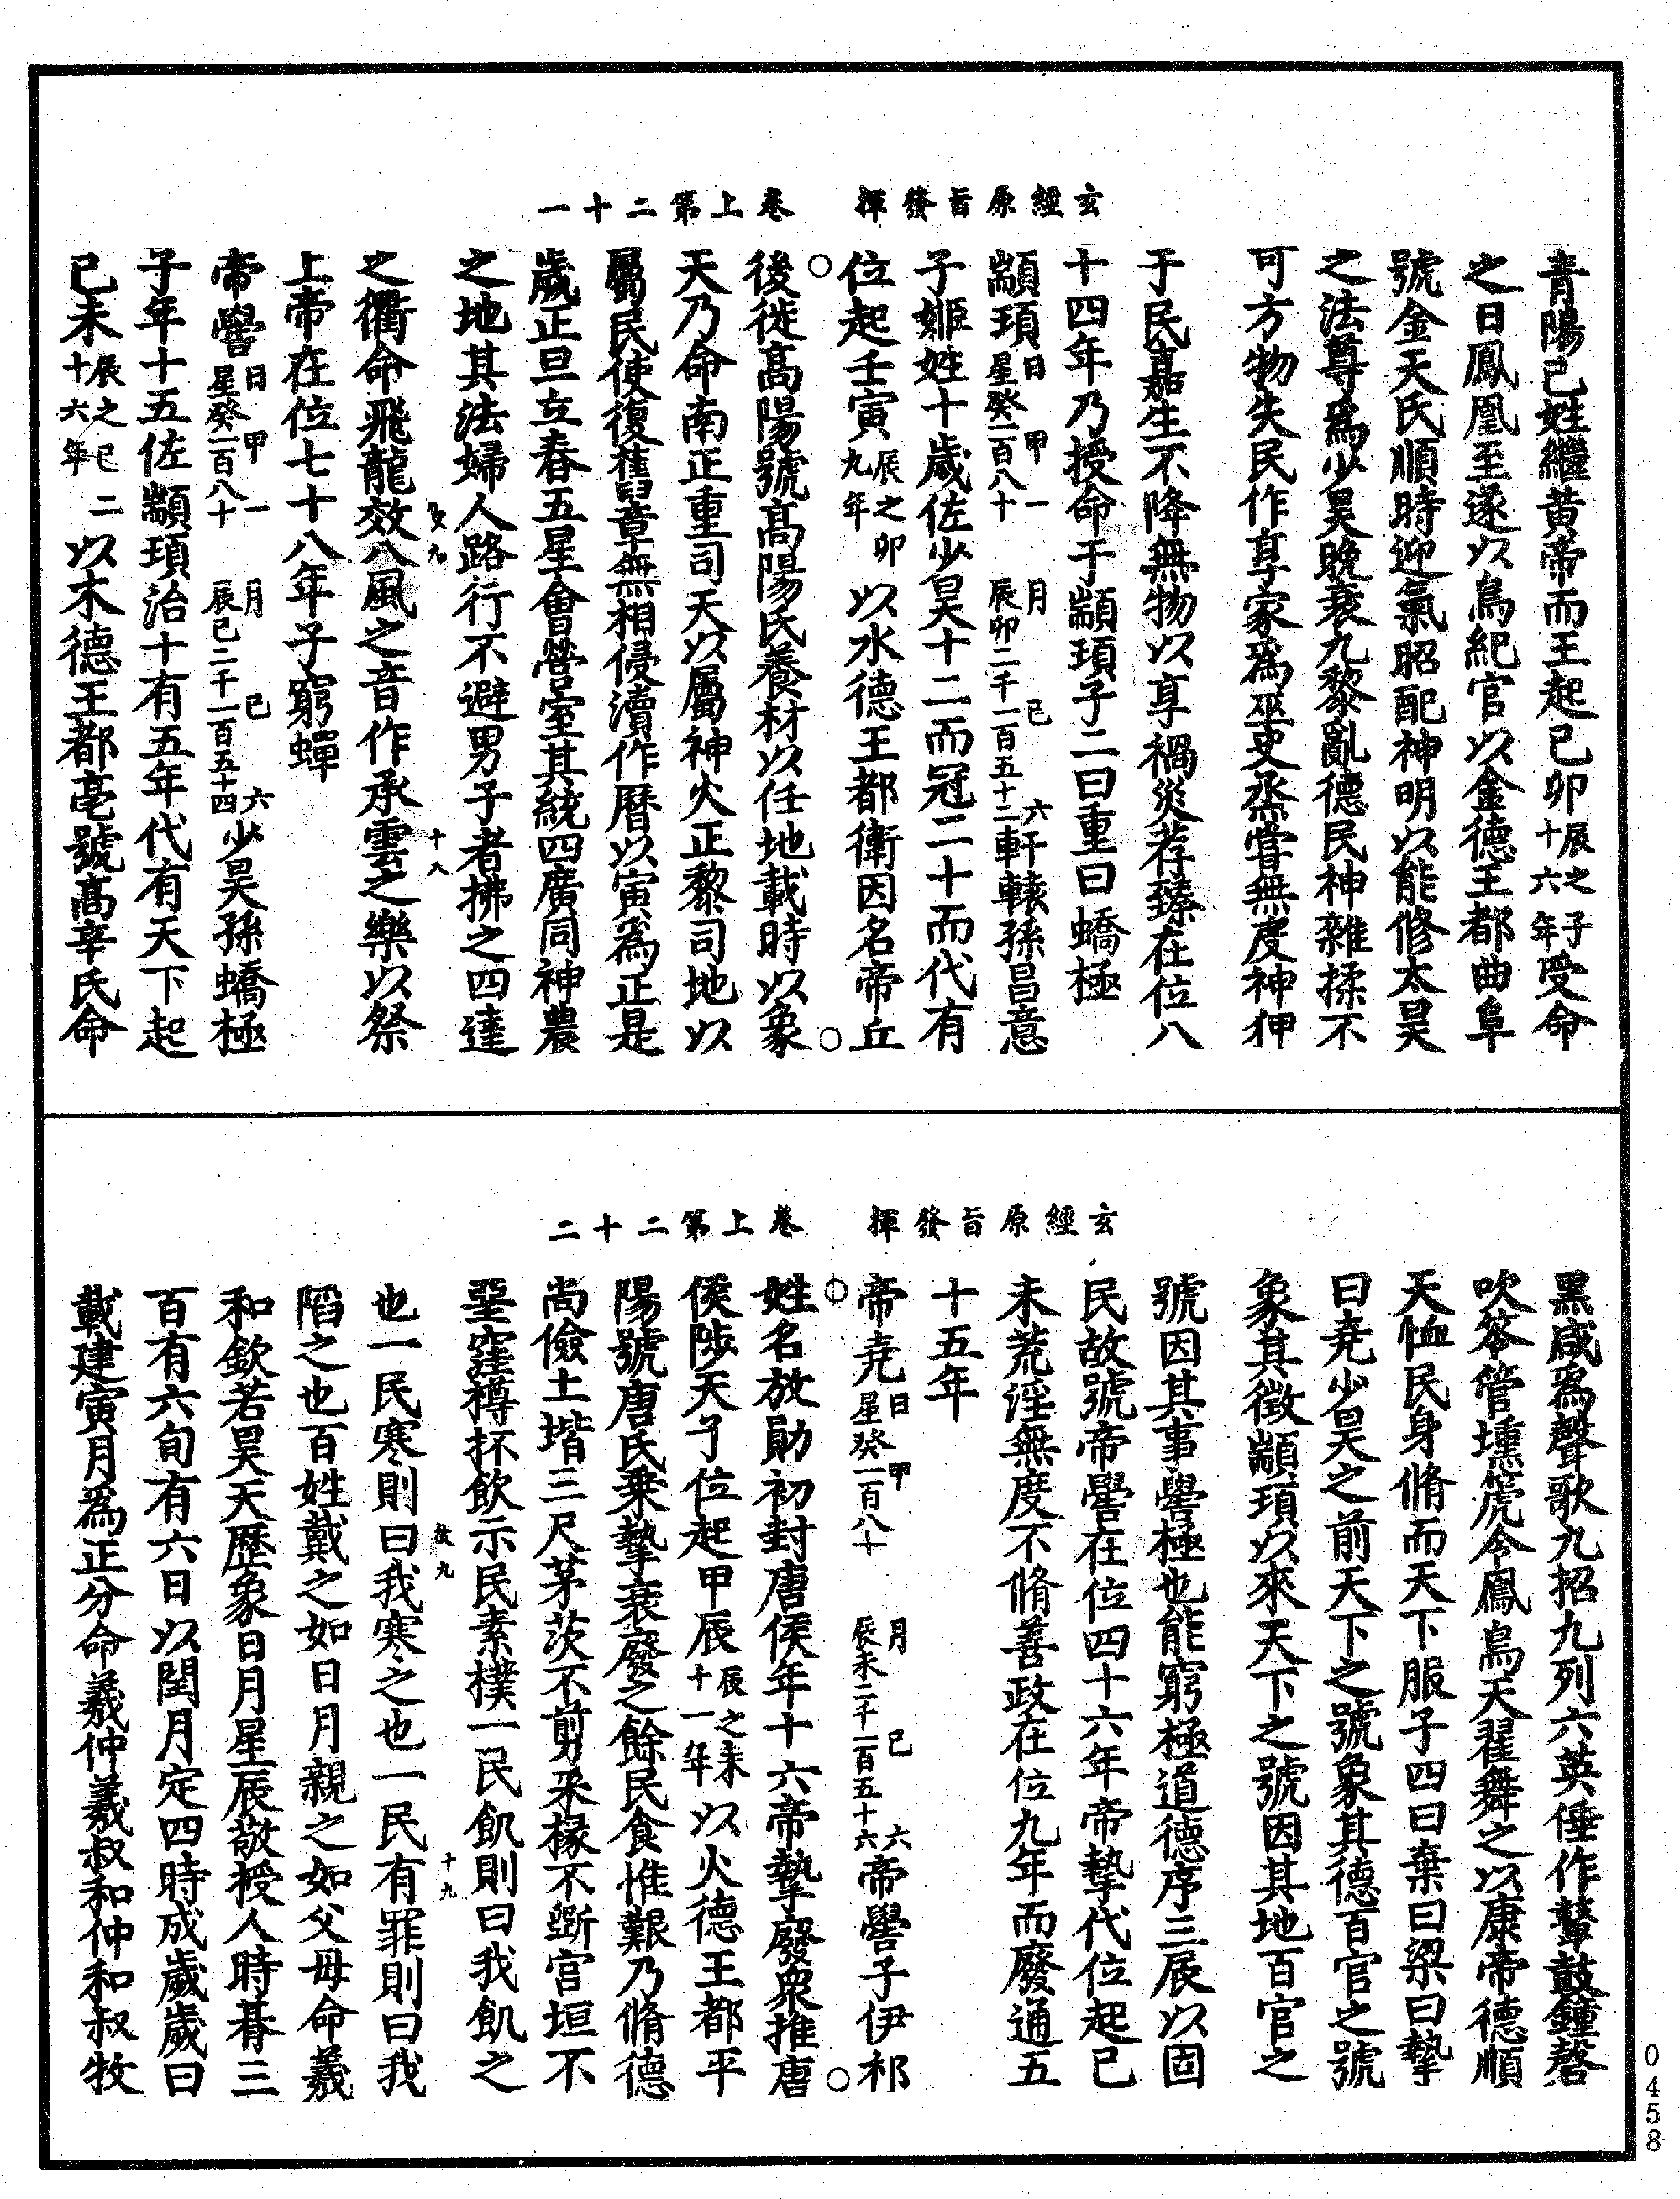 玄經原旨發揮　卷上第二十一
青陽己姓繼黃帝而王起己卯辰之子十六年受命
之日鳳凰至遂以鳥紀官以金德王都曲阜
號金天氏順時迎氣昭配神明以能修太昊
之法尊爲少昊晚衰九黎亂德民神雜揉不
可方物失民作享家爲巫史烝嘗無度神狎
于民嘉生不降無物以享禍災荐臻在位八
十四年乃授命于顓頊子二曰重曰蟜極
顓頊日甲一星癸一百八十月己六辰卯二千一百五十二軒轅孫昌意
子姬姓十歲佐少昊十二而冠二十而代有
位起壬寅辰之卯九年以水德王都衛因名帝丘
後徙高陽號高陽氏養材以任地載時以象
天乃命南正重司天以屬神火正黎司地以
屬民使復舊章無相侵瀆作曆以寅爲正是
歲正旦立春五星會營室其統四廣同神農
之地其法婦人路行不避男子者拂之四達
之衢命飛龍效八風之音作承雲之樂以祭
上帝在位七十八年子窮蟬
帝嚳日甲一星癸一百八十月己六辰巳二千一百五十四少昊孫蟜極
子年十五佐顓頊治十有五年代有天下起
己未辰之巳二十六年以木德王都亳號高辛氏命
玄經原旨發揮　卷上第二十二
黑咸爲聲歌九招九列六英倕作鼙鼓鐘磬
吹笭管壎箎令鳳鳥天翟舞之以康帝德順
天恤民身脩而天下服子四曰棄曰梁曰摯
曰堯少昊之前天下之號象其德百官之號
象其徵顓頊以來天下之號因其地百官之
號因其事嚳極也能窮極道德序三辰以固
民故號帝嚳在位四十六年帝摯代位起己
未荒淫無度不脩善政在位九年而廢通五
十五年
帝堯日甲星癸一百八十月己六辰未二千一百五十六帝嚳子伊祁
姓名放勛初封唐侯年十六帝摯廢衆推唐
侯陟天子位起甲辰辰之未十一年以火德王都平
陽號唐氏乗摯衰廢之餘民食惟艱乃脩德
尚儉土堦三尺茅茨不剪采椽不斲宮垣不
堊窪樽抔飲示民素樸一民飢則曰我飢之
也一民寒則曰我寒之也一民有罪則曰我
陷之也百姓戴之如日月親之如父母命羲
和欽若昊天歷象日月星辰敬授人時朞三
百有六旬有六日以閏月定四時成歲歲曰
載建寅月爲正分命羲仲羲叔和仲和叔牧
0458